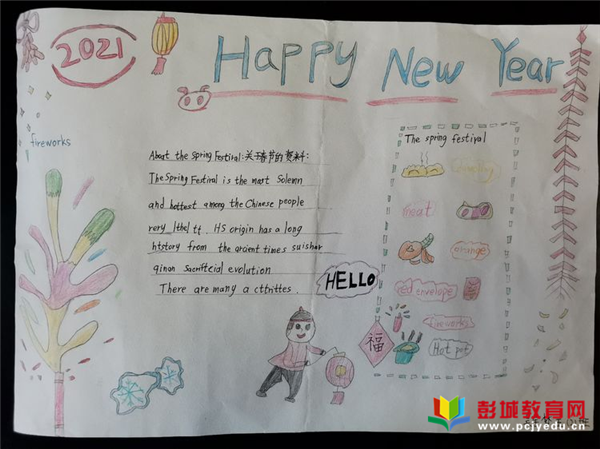 2021
Happy New Year
fireworks
About the Spring Festival:关于春节的资料:
The Spring Festival is the most Solemn
and hottest among the Chinese people
origin has a long
history from the ancient times
evolution
There are many a
HELLO
The spring festival
meat
orange
red envelope
fireworks
Hot pot
福
彭城教育网
www.pcjyedu.cn